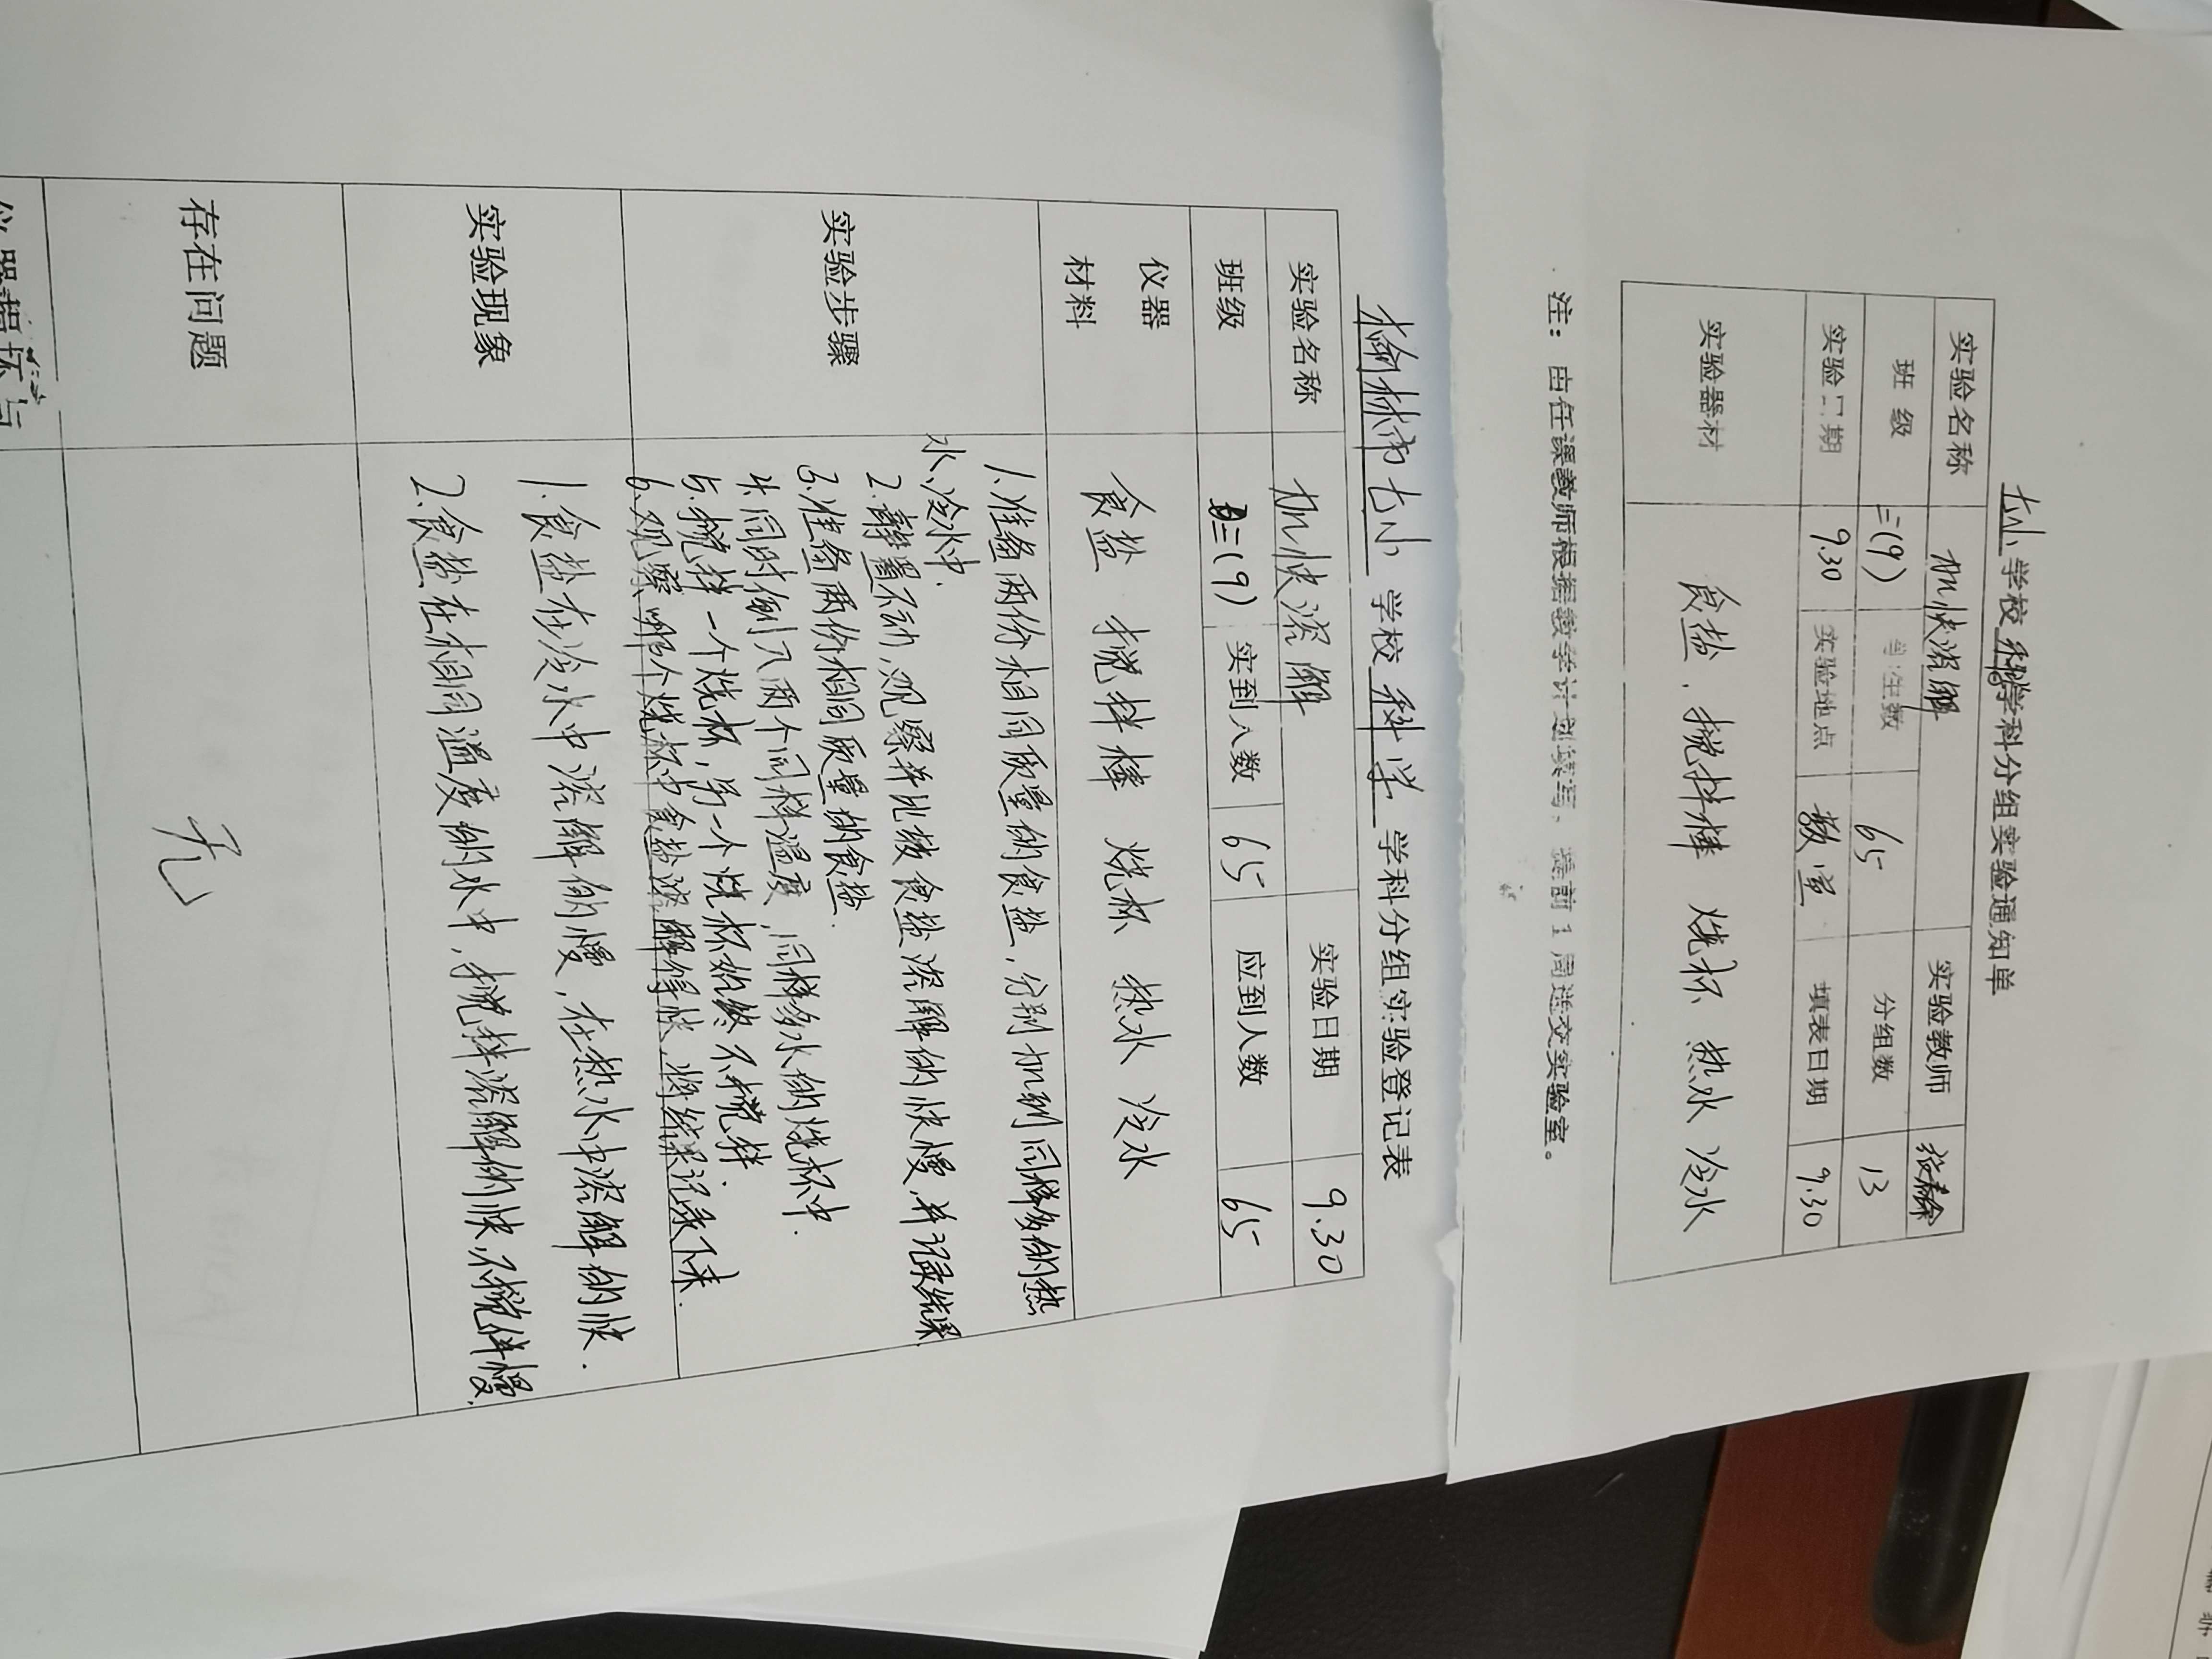 七小学校科学学科分组实验通知单
实验名称 加快溶解 实验教师
班 级 三(9) 学生数 65 分组数 13
实验日期 9.30 实验地点 教室 填表日期 9.30
实验器材 食盐、搅拌棒 烧杯 热水 冷水
注：由任课教师根据教学计划填写、提前1周送交实验室。
榆林市七小学校科学学科分组实验登记表
实验名称 加快溶解 实验日期 9.30
班级 三(9) 实到人数 65 应到人数 65
仪器
材料
食盐 搅拌棒 烧杯 热水 冷水
实验步骤
1.准备两份相同质量的食盐，分别加到同样多的热
水、冷水中.
2.静置不动，观察并比较食盐溶解的快慢，并记录结果
3.准备两份相同质量的食盐.
4.同时倒入两个同样温度，同样多水的烧杯中.
5.搅拌一个烧杯，另一个烧杯始终不搅拌.
6.观察哪个烧杯中食盐溶解得快，将结果记录下来.
实验现象
1.食盐在冷水中溶解的慢，在热水中溶解的快.
2.食盐在相同温度的水中，搅拌溶解的快，不搅伴慢.
存在问题 无
仪器损坏与